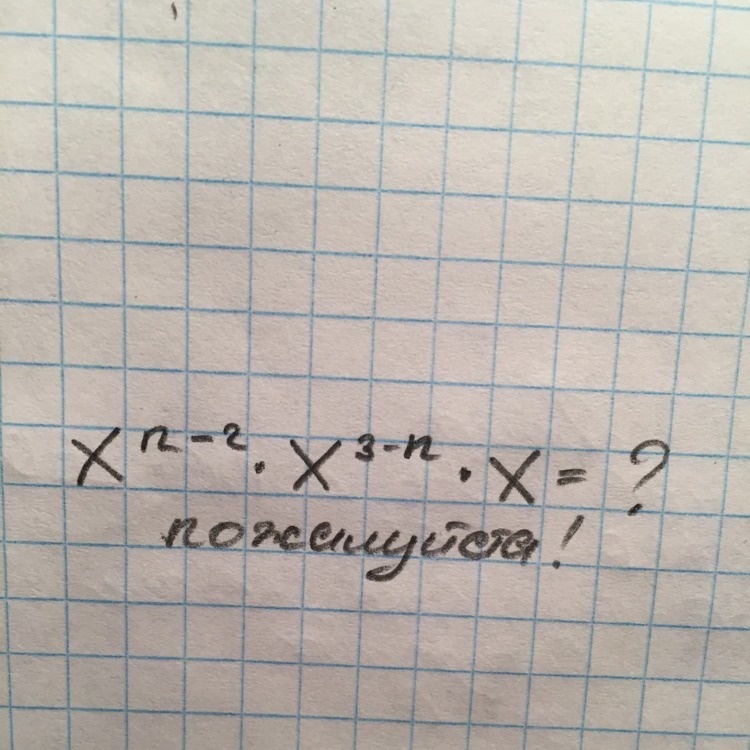 x^{n-2} · x^{3-n} · x = ?
пожалуйста!